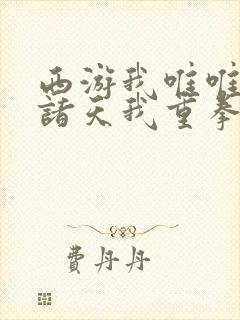 西游我唯唯
諸天我重拳
費丹丹